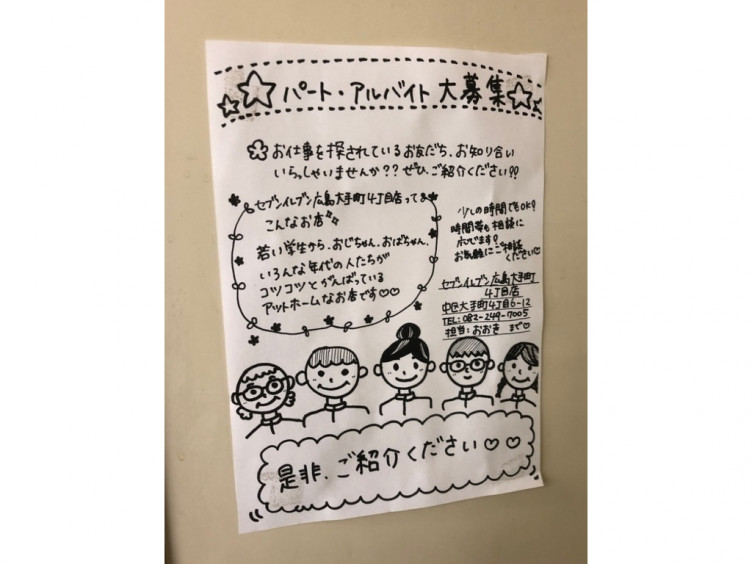 パート・アルバイト 大募集
お仕事を探されているお友だち、お知り合い
いらっしゃいませんか?? ぜひ、ご紹介ください!!
セブンイレブン広島大手町4丁目店ってぁ
こんなお店
若い学生から、おじちゃん、おばちゃん、
いろんな年代の人たちが
コツコツとがんばっている
アットホームなお店です♡♡
少しの時間でもOK!
時間帯も相談に
応じます!
お気軽にご相談
ください♡
セブンイレブン広島大手町
4丁目店
中区大手町4丁目6-12
TEL:082-249-7005
担当:おおき まで♡
是非、ご紹介ください♡♡